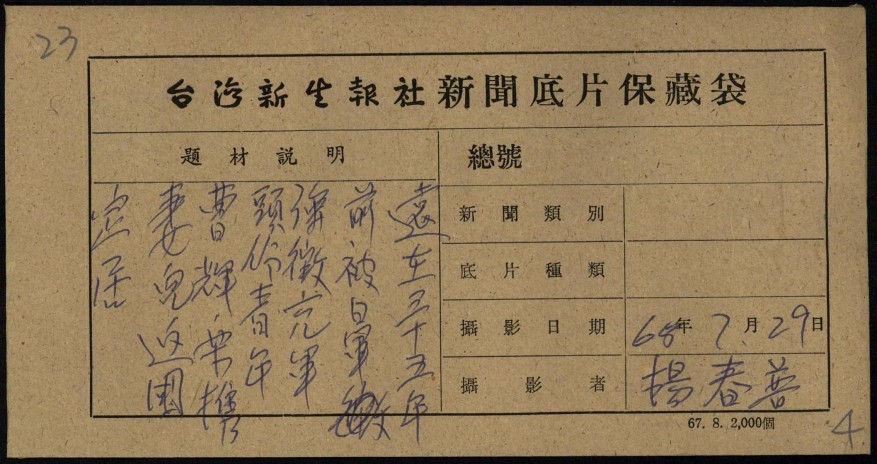 23
台湾新生報社新聞底片保藏袋
題材説明
遠在三十五年
前被日軍
強徵充軍
頭份青年
曹輝樂携
妻兒返國
定居
總號
新聞類別
底片種類
攝影日期 68年 7月 29日
攝影者 楊春華
67. 8. 2,000個
4